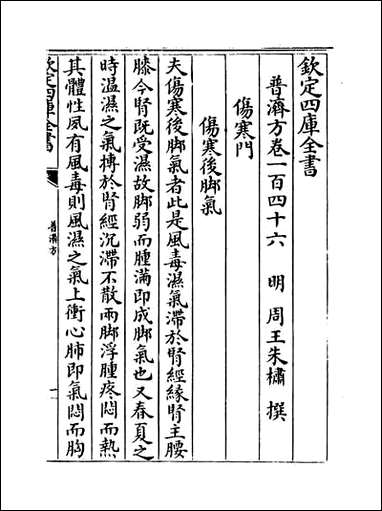 欽定四庫全書
普濟方卷一百四十六　明　周王朱橚　撰
傷寒門
傷寒後脚氣
夫傷寒後脚氣者此是風毒濕氣滯於腎經緣腎主腰
膝今腎既受濕故脚弱而腫滿即成脚氣也又春夏之
時温濕之氣搏於腎經沉滯不散兩脚浮腫疼悶而熱
其體性夙有風毒則風濕之氣上衝心肺即氣悶而胸
欽定四庫全書
普濟方